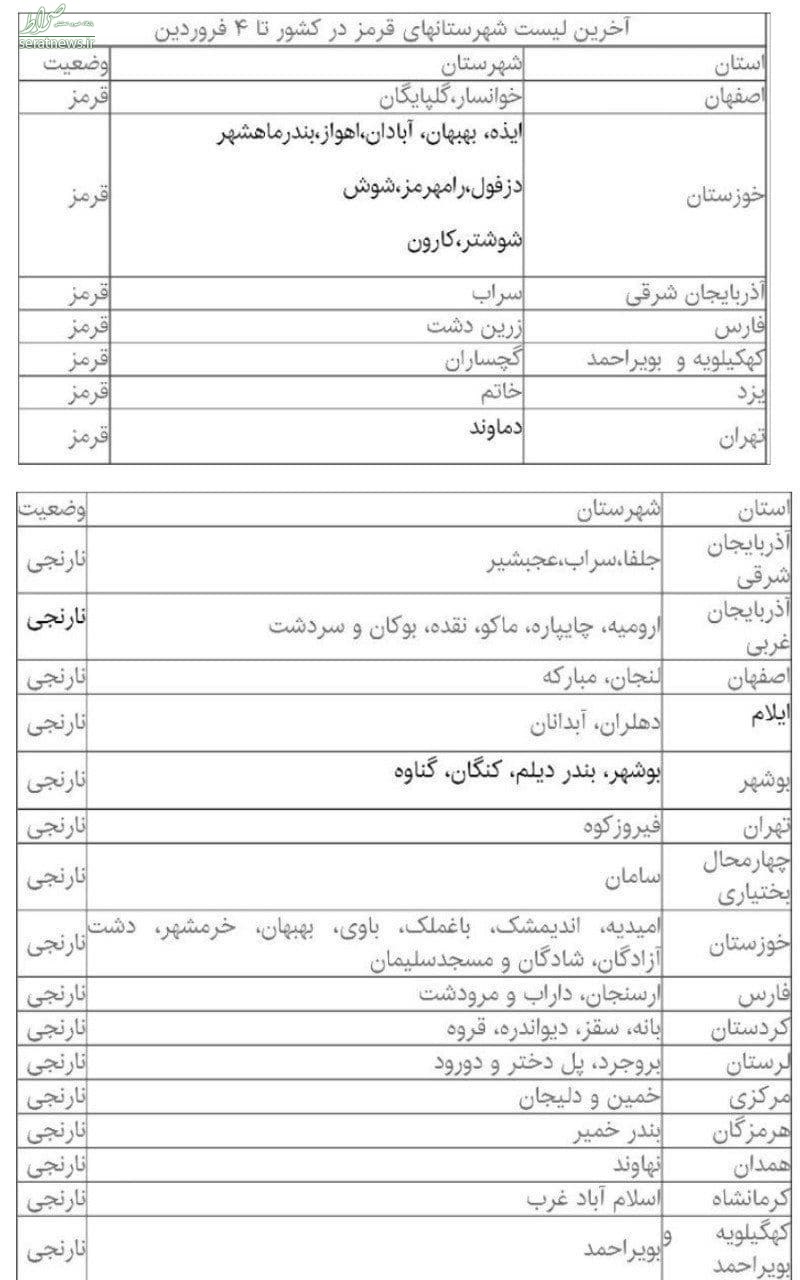 صراط
seratnews.ir
آخرین لیست شهرستانهای قرمز در کشور تا ۴ فروردین
استان شهرستان وضعیت
اصفهان خوانسار،گلپایگان قرمز
خوزستان ایذه، بهبهان، آبادان،اهواز،بندرماهشهر
دزفول،رامهرمز،شوش
شوشتر،کارون
قرمز
آذربایجان شرقی سراب قرمز
فارس زرین دشت قرمز
کهکیلویه و بویراحمد گچساران قرمز
یزد خاتم قرمز
تهران دماوند قرمز
استان شهرستان وضعیت
آذربایجان
شرقی
جلفا،سراب،عجبشیر نارنجی
آذربایجان
غربی
ارومیه، چایپاره، ماکو، نقده، بوکان و سردشت نارنجی
اصفهان لنجان، مبارکه نارنجی
ایلام دهلران، آبدانان نارنجی
بوشهر بوشهر، بندر دیلم، کنگان، گناوه نارنجی
تهران فیروزکوه نارنجی
چهارمحال
بختیاری
سامان نارنجی
خوزستان امیدیه، اندیمشک، باغملک، باوی، بهبهان، خرمشهر، دشت
آزادگان، شادگان و مسجدسلیمان
نارنجی
فارس ارسنجان، داراب و مرودشت نارنجی
کردستان بانه، سقز، دیواندره، قروه نارنجی
لرستان بروجرد، پل دختر و دورود نارنجی
مرکزی خمین و دلیجان نارنجی
هرمزگان بندر خمیر نارنجی
همدان نهاوند نارنجی
کرمانشاه اسلام آباد غرب نارنجی
کهگیلویه و
بویراحمد
بویراحمد نارنجی